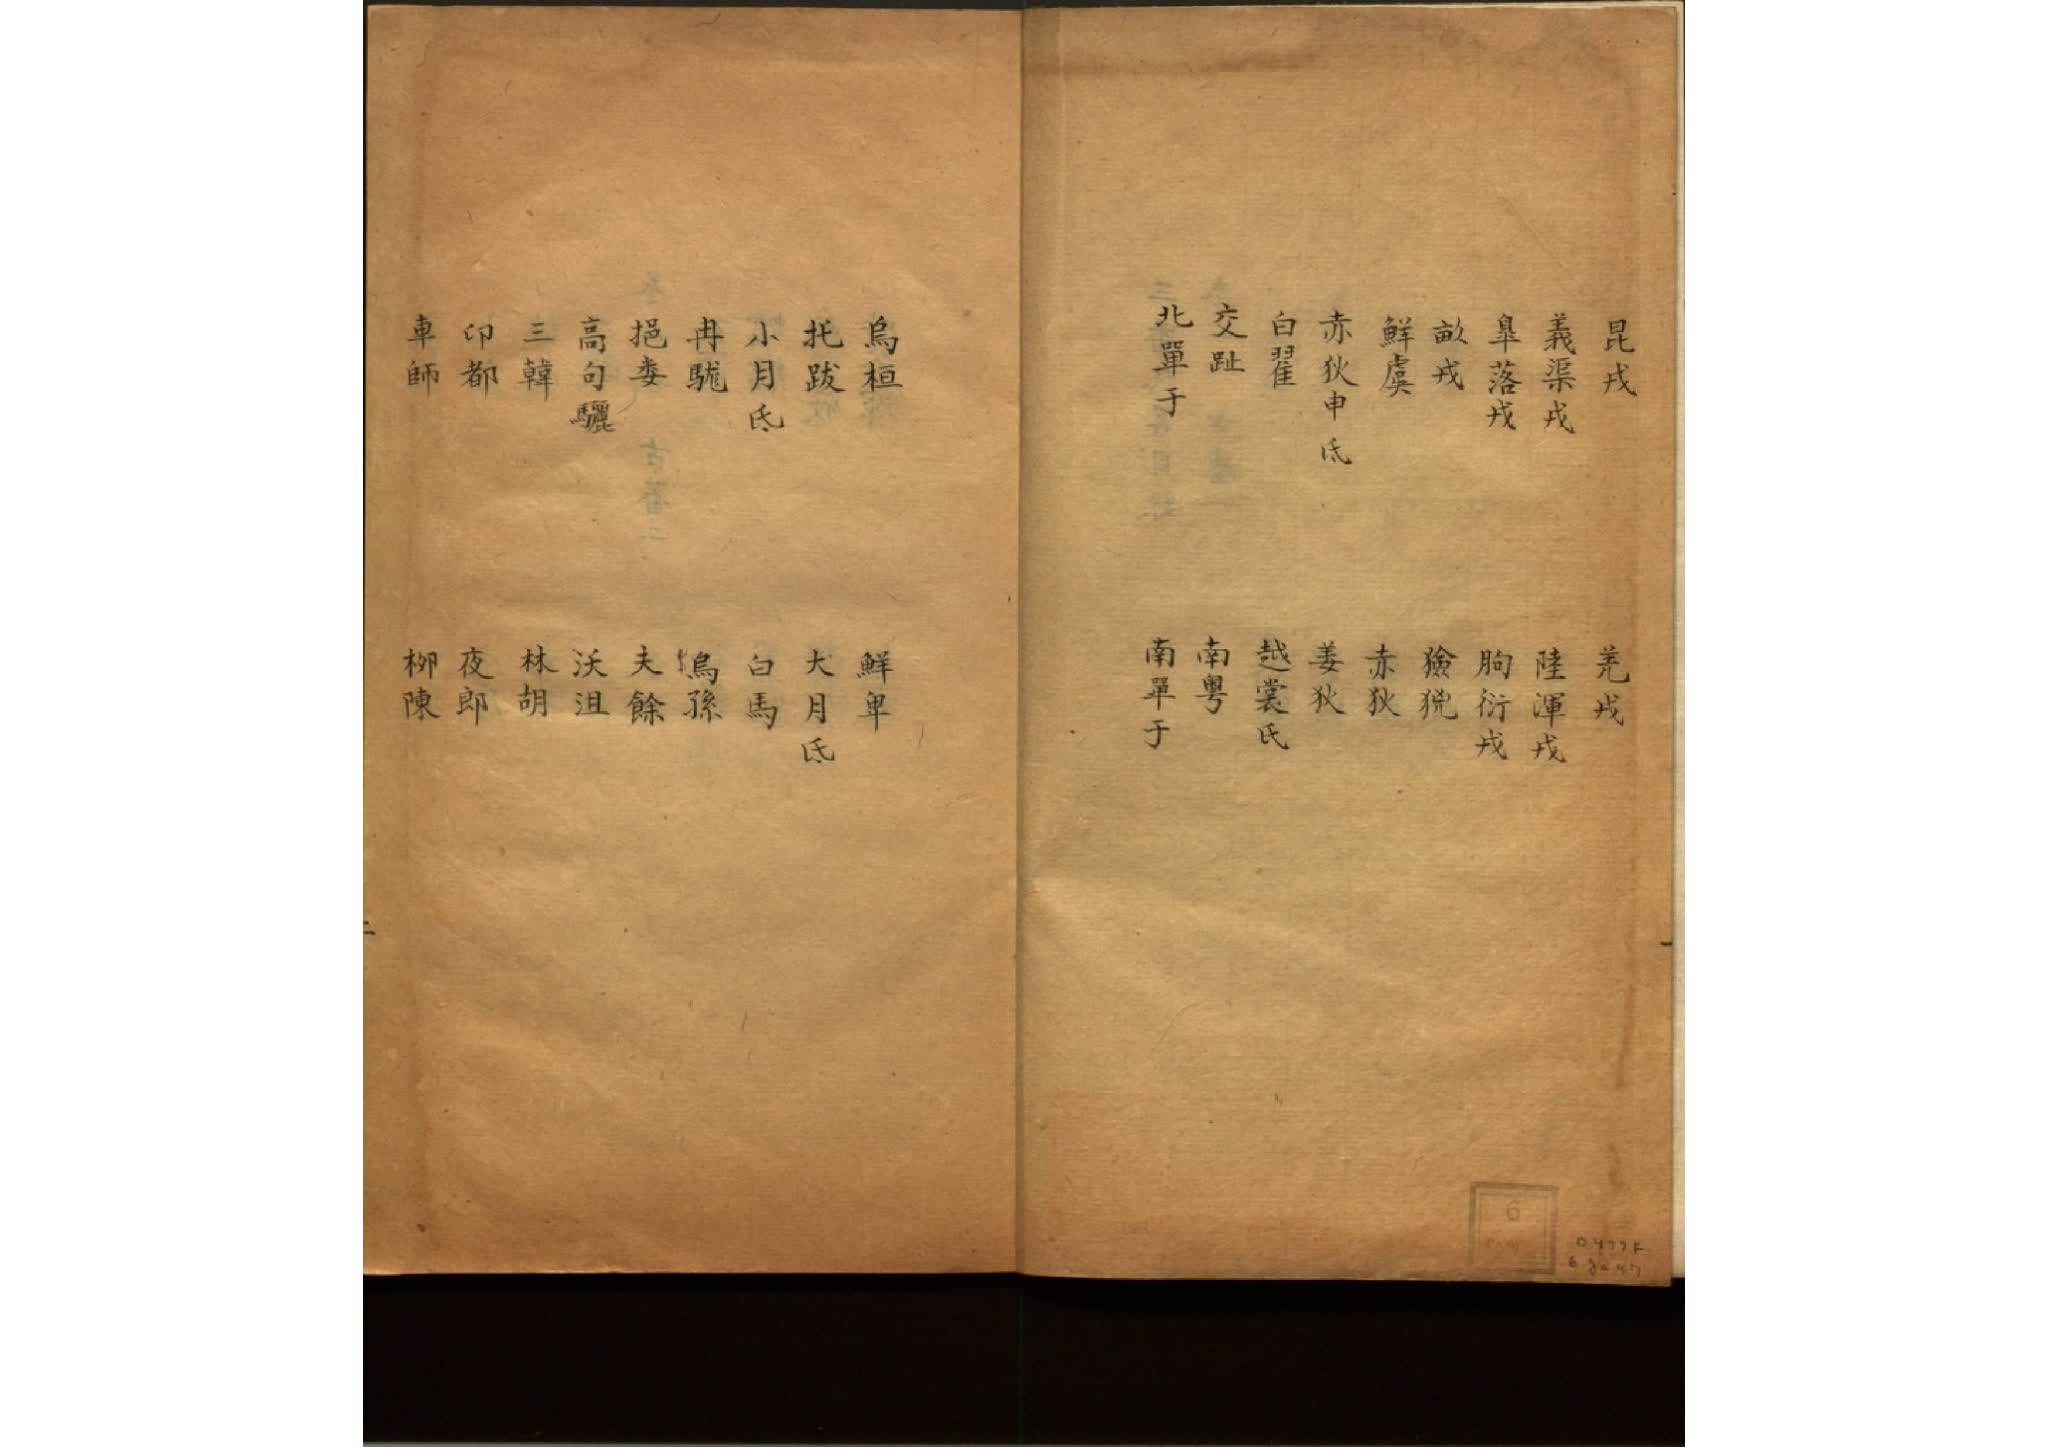 昆戎 羌戎
義渠戎 陸渾戎
臯落戎 朐衍戎
畝戎 獫狁
鮮虞 赤狄
赤狄申氐 姜狄
白翟 越裳氏
交趾 南粤
北單于 南單于
烏桓 鮮卑
托跋 大月氐
小月氐 白馬
冉駹 烏孫
挹婁 夫餘
高句驪 沃沮
三韓 林胡
卬都 夜郎
車師 柳陳